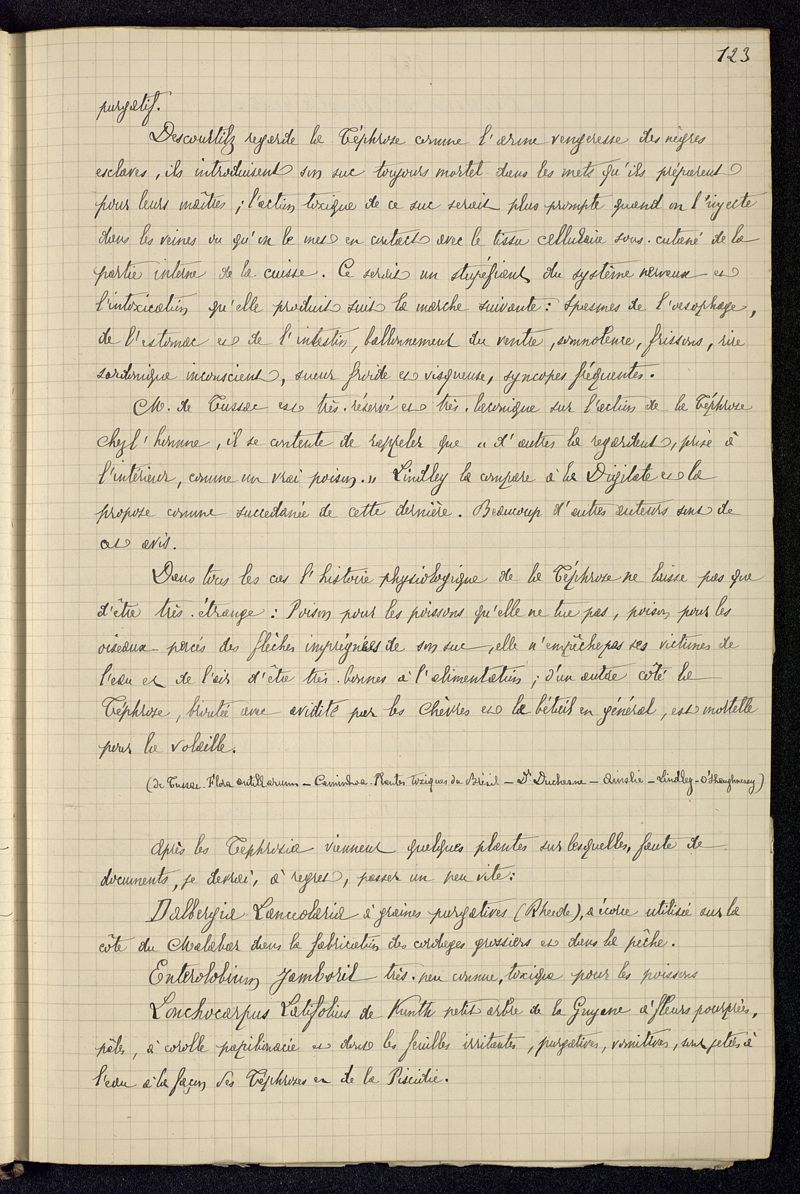 123
purgatif.
Descourtilz regarde la Téphrose comme l'arme vengeresse des nègres
esclaves, ils introduisent son suc toujours mortel dans les mets qu'ils préparent
pour leurs maîtres ; l'action toxique de ce suc serait plus prompte quand on l'injecte
dans les veines ou qu'on le met en contact avec le tissu cellulaire sous-cutané de la
partie interne de la cuisse. Ce serait un stupéfiant du système nerveux et
l'intoxication qu'elle produit suit la marche suivante : spasmes de l'oesophage,
de l'estomac et de l'intestin, ballonnement du ventre, somnolence, frissons, rire
sardonique inconscient, sueur froide et visqueuse, syncopes fréquentes.
M. de Tussac est très-réservé et très-laconique sur l'action de la Téphrose
chez l'homme, il se contente de rappeler que „ d'autres la regardent, prise à
l'intérieur, comme un vrai poison. „ Lindley la compare à la Digitale et la
propose comme succedanée de cette dernière. Beaucoup d'autres auteurs sont de
cet avis.
Dans tous les cas l'histoire physiologique de la Téphrose ne laisse pas que
d'être très-étrange : Poison pour les poissons qu'elle ne tue pas, poison pour les
oiseaux percés des flèches imprégnées de son suc, elle n'empêche pas ses victimes de
l'eau et de l'air d'être très-bonnes à l'alimentation ; d'un autre côté la
Téphrose, broutée avec avidité par les chèvres et le bétail en général, est mortelle
pour la volaille.
(de Tussac-Flora antillarum – Caminhoa-Plantes toxiques du Brésil – Dr Duchasne – Ainslie – Lindley – O'Shaughnessy)
Après les Tephrosia viennent quelques plantes sur lesquelles, faute de
documents, je devrai, à regret, passer un peu vite :
Dalbergia Lanceolaria à graines purgatives (Rheede), à écorce utilisée sur la
côte du Malabar dans la fabrication des cordages grossiers et dans la pêche.
Enterolobium Jamboril très-peu connue, toxique pour les poissons
Lonchocarpus Latifolius de Kunth petit arbre de la Guyane à fleurs pourprées,
pâles, à corolle papilionacée et dont les feuilles irritantes, purgatives, vomitives, sont jetées à
l'eau à la façon des Téphroses et de la Piscidie.